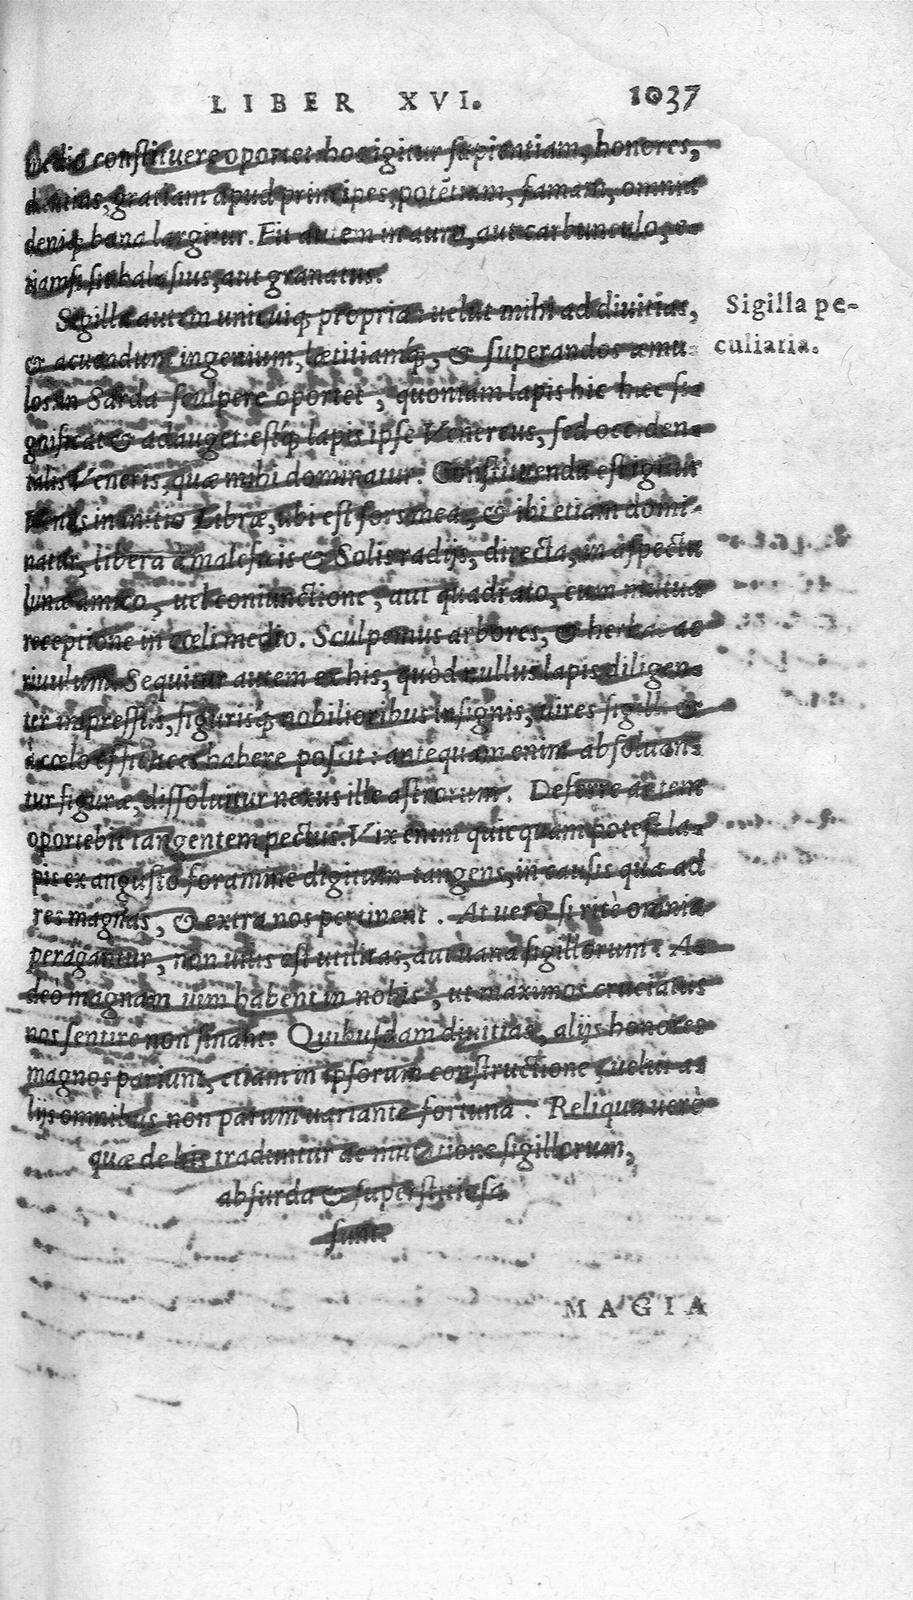 LIBER XVI. 1037
medio constituere oportet hoc igitur sapientiam, honores,
diuitias, gratiam apud principes, potētiam, famam, omnia
deniq; bona largitur. Fit autem in auro, aut carbunculo, e-
tiamsi sit balasius, aut granatus.
Sigilla autem unicuiq; propria: uelut mihi ad diuitias,
Sigilla pe-
& acuendum ingenium, lætitiamq́;, & superandos æmu-
culiaria.
los in Sarda sculpere oportet, quoniam lapis hic hæc si-
gnificat & adauget: estq́; lapis ipse Venereus, sed occiden-
talis Veneris, quæ mihi dominatur. Constituenda est igitur
Venus in initio Libræ, ubi est fors mea, & ibi etiam domi-
natur, libera à maleficis & Solis radijs, directa, in aspectu
lunæ amico, uel coniunctione, aut quadrato, cum mutua
receptione in cœli medio. Sculpamus arbores, & herbas ac
riuulum. Sequitur autem ex his, quòd nullus lapis diligen-
ter impressis, figurisq; nobilioribus insignis, uires sigilli &
à cœlo efficaces habere possit: antequam enim absoluan-
tur figuræ, dissoluitur nexus ille astrorum. Deferre autem
oportebit tangentem pectus. Vix enim quicquam potest la-
pis ex angusto foramine digitum tangens, in causis quæ ad
res magnas, & extra nos pertinent. At uerò si ritè omnia
peragantur, non uilis est utilitas, aut uana sigillorum. A-
deò magnam uim habent in nobis, ut maximos cruciatus
nos sentire non sinant. Quibusdam diuitias, alijs honores
magnos pariunt, etiam in ipsorum constructione, uelut a-
lijs omnibus non parum uariante fortuna. Reliqua uerò
quæ de his traduntur ac mutatione sigillorum,
absurda & superstitiosa
sunt.
MAGIA